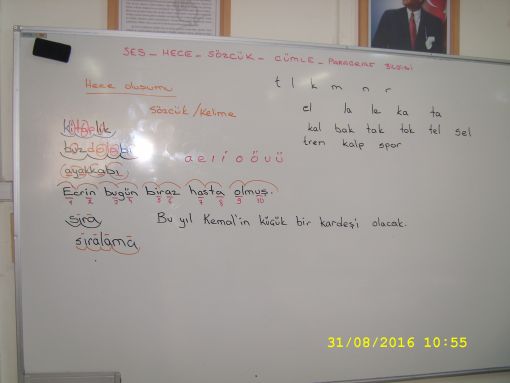 SES - HECE - SÖZCÜK - CÜMLE - PARAGRAF BİLGİSİ
Hece oluşumu
t l k m n r
sözcük / kelime
el la le ka ta
kitaplık
kal bak tak tok tel sel
buzdolabı
tren kalp spor
a e ı i o ö u ü
ayakkabı
Ecrin bugün biraz hasta olmuş.
1 2 3 4 5 6 7 8 9 10
sıra
Bu yıl Kemal'in küçük bir kardeşi olacak.
sıralama
31/08/2016 10:55